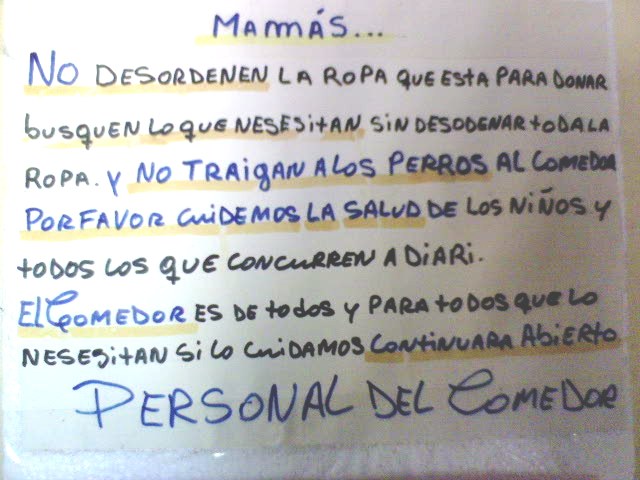 Mamás...
NO DESORDENEN LA ROPA QUE ESTA PARA DONAR
busquen lo que NESESitAN SiN DESODENAR todA LA
ROPA. y NO TRAigAN A LOS PERROS AL COMEDOR
POR FAVOR CuiDEMOS LA SALUD DE LOS NiÑOS y
todos LOS QUE CONCURREN A DiARi.
El COMEDOR ES DE todos y PARA todos QUE LO
NESESitAN Si LO CuiDAMOS CONtiNUARA AbiERto
PERSONAL DEL COMEDOR